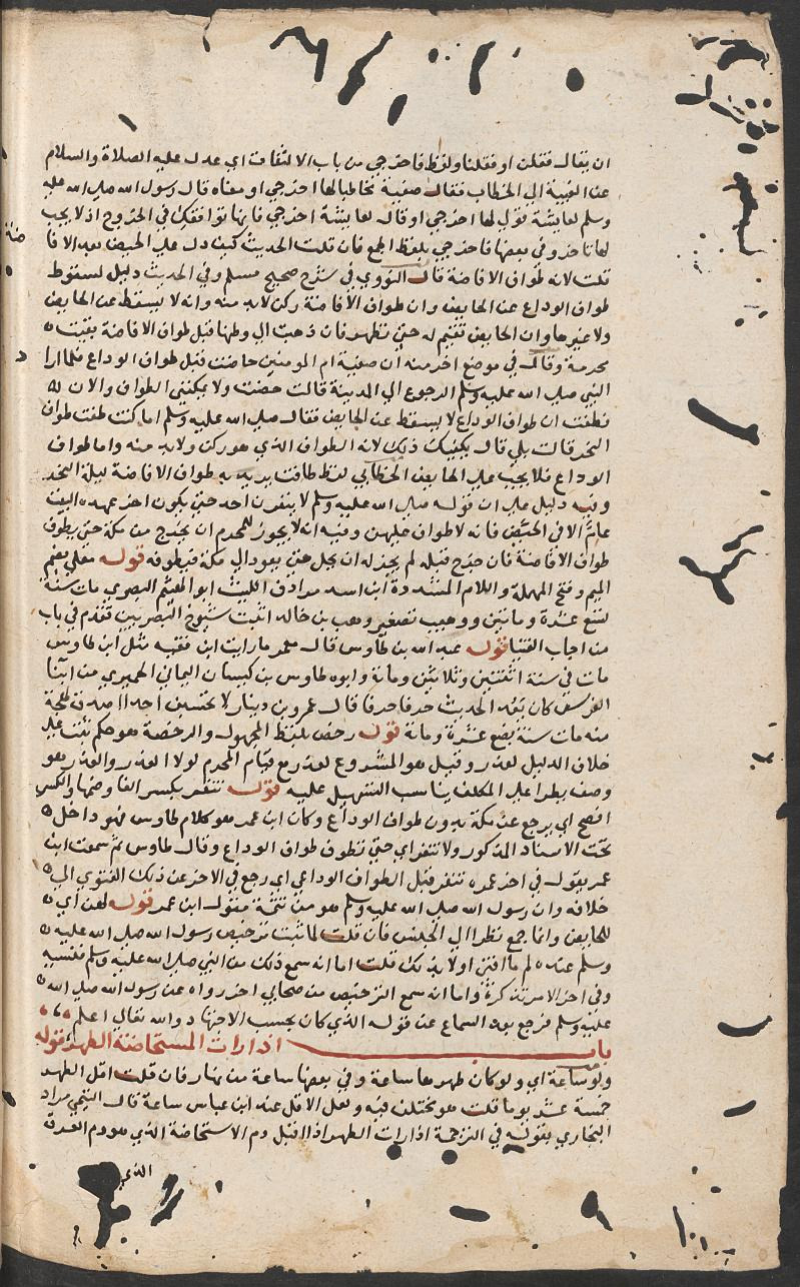 ان يقال فقلن او فقلنا ولفظ فاخرجي من باب الالتفات اي عدل عليه الصلاة والسلام
عن الغيبة الي الخطاب فقال صفية مخاطبا لها اخرجي او معناه قال رسول الله صلى الله عليه
وسلم لعايشة قولي لها اخرجي او قال لعايشة اخرجي فانها توافقك في الخروج اذ لا يجب
لها تاخر وفي بعضها فاخرجن بلفظ الجمع فان قلت الحديث كيف دل علي الحيض بعد الافا
قلت لانه طواف الافاضة قال النووي في شرح صحيح مسلم وفي الحديث دليل لسقوط
طواف الوداع عن الحايض وان طواف الافاضة ركن لا بد منه وانه لا يسقط عن الحايض
ولا غيرها وان الحايض تقيم له حتي تطهر فان ذهبت الي وطنها قبل طواف الافاضة بقيت
محرمة وقال في موضع اخر منه ان صفية ام المومنين حاضت قبل طواف الوداع فلما ارا
النبي صلى الله عليه وسلم الرجوع الي المدينة قالت حضت ولا يمكنني الطواف والان
فظنت ان طواف الوداع لا يسقط عن الحايض فقال صلى الله عليه وسلم اما كنت طفت طواف
النحر قالت بلي قال يكفيك ذلك لانه الطواف الذي هو ركن ولابد منه واما طواف
الوداع فلا يجب علي الحايض الخطابي لفظ طافت يريد به طواف الافاضة ليلة النحر
وفيه دليل علي ان قوله صلى الله عليه وسلم لا ينفرن احد حتي يكون اخر عهده البيت
عام الا في الحيض فانه لا طواف عليهن وفيه انه لا يجوز للمحرم ان يخرج من مكة حتي يطوف
طواف الافاضة فان خرج قبله لم يجز له ان يحل حتي يعود الي مكة فيطوف قوله معلي بضم
الميم وفتح المهملة واللام المشددة ابن اسد مرادف الليث ابو الهيثم البصري مات سنة
تسع عشرة وماتين ووهيب تصغير وهب بن خالد اثبت شيوخ البصريين تقدم في باب
من اجاب الفتيا قوله عبد الله بن طاوس قال معمر ما رايت ابن فقيه مثل ابن طاوس
مات في سنة اثنتين وثلاثين وماية وابوه طاوس بن كيسان اليماني الحميري من ابنا
الفرس كان يعد الحديث حرفا حرفا قال عمرو بن دينار لا تحسبن احدا اصدق لهجة
منه مات سنة بضع عشرة وماية قوله رخص بلفظ المجهول والرخصة هو حكم ثبت علي
خلاف الدليل لعذر وقيل هو المشروع لعذر مع قيام المحرم لولا العذر والعذر هو
وصف يطرا علي المكلف يناسب التسهيل عليه قوله تنفر بكسر الفا وضمها والكسر
افصح اي يرجع عن مكة بدون طواف الوداع وكان ابن عمر هو كلام طاوس فهو داخل
تحت الاسناد المذكور ولا تنفر اي حتي تطوف طواف الوداع وقال طاوس ثم سمعت ابن
عمر يقول في اخر عمره تنفر قبل الطواف الوداعي اي رجع في الاخر عن ذلك الفتوي الي
خلافه وان رسول الله صلى الله عليه وسلم هو من تتمة مقول ابن عمر قوله لهن اي
للحايض وانما جمع نظرا الي الجنس فان قلت لما ثبت ترخيص رسول الله صلى الله عليه
وسلم عنده لم ما افتي اولا بذلك قلت اما انه سمع ذلك من النبي صلى الله عليه وسلم فنسيه
وفي اخر الامر تذكره واما انه سمع الترخيص من صحابي اخر رواه عن رسول الله صلى الله
عليه وسلم فرجع بعد السماع عن قوله الذي كان بحسب الاجتهاد والله تعالي اعلم
باب اذا رات المستحاضة الطهر قوله
ولو ساعة اي ولو كان طهرها ساعة وفي بعضها ساعة من نهار فان قلت اقل الطهر
خمسة عشر يوما قلت هو مختلف فيه ولعل الاقل عند ابن عباس ساعة قال التيمي مراد
البخاري بقوله في الترجمة اذا رات الطهر اذا اقبل دم الاستحاضة الذي هو دم العرق
الذي